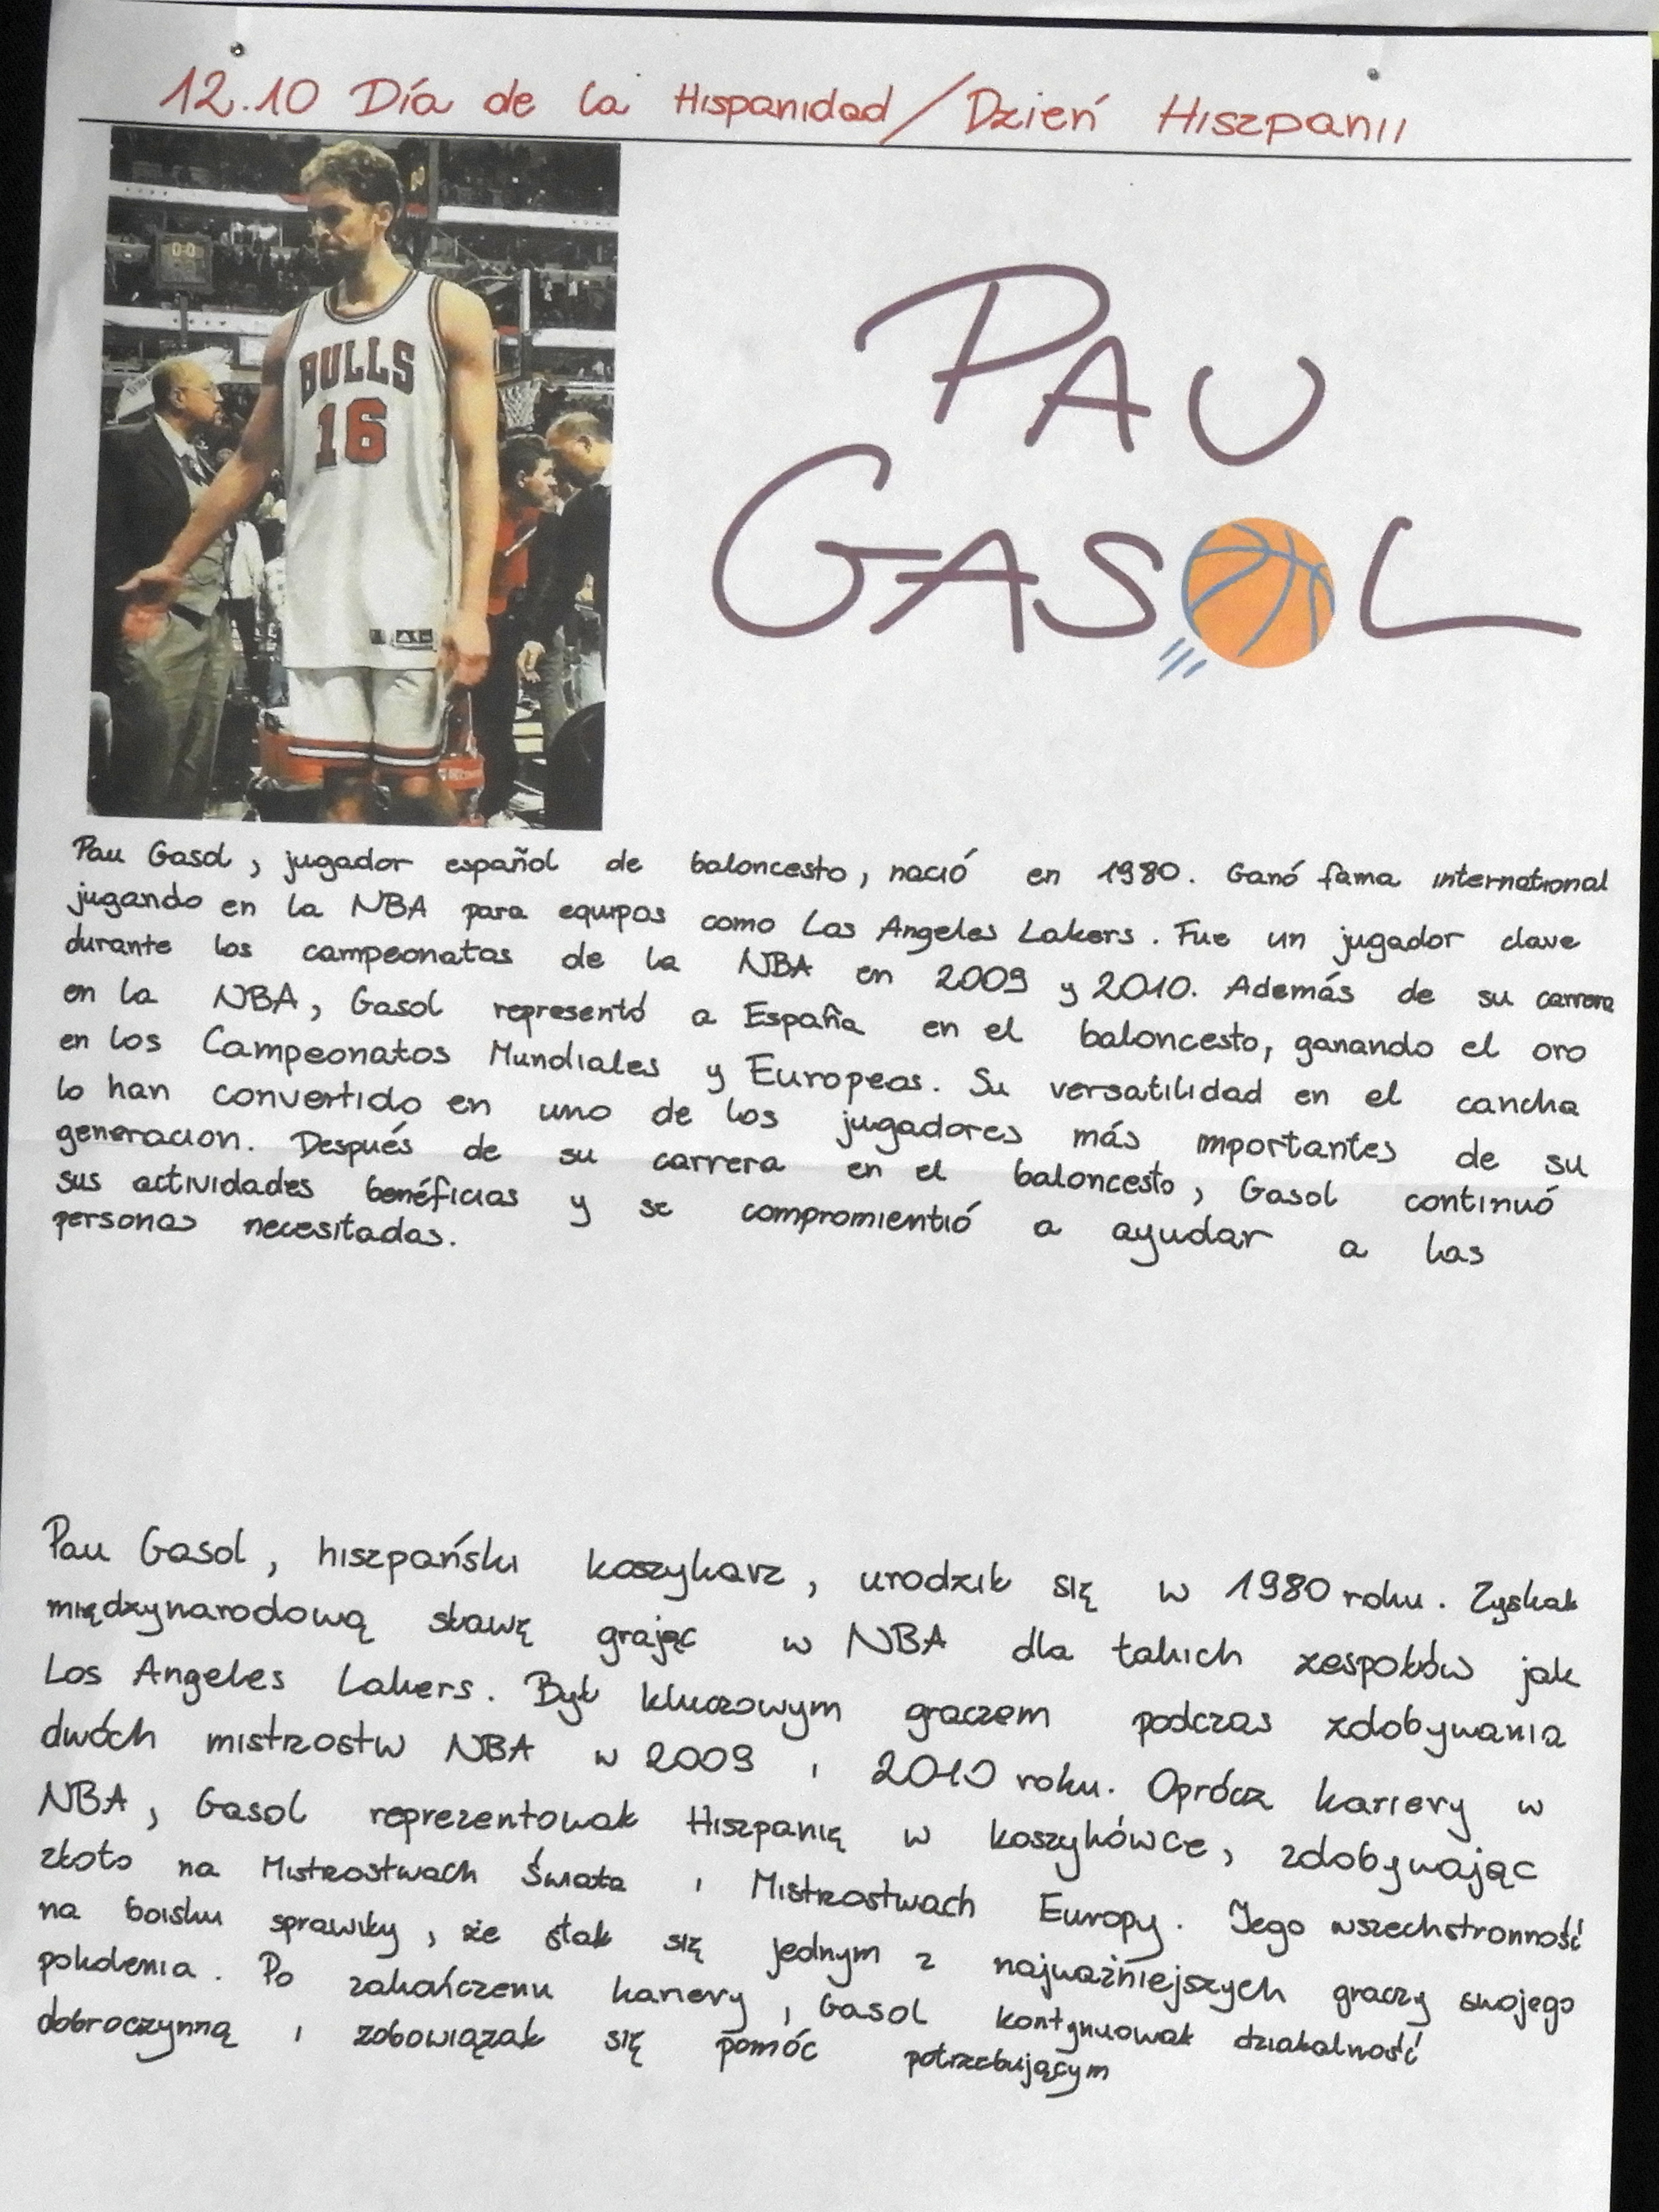 12.10 Día de la Hispanidad/Dzień Hiszpanii
BULLS
16
PAU
GASOL
Pau Gasol, jugador español de baloncesto, nació en 1980. Ganó fama international
jugando en la NBA para equipos como Los Angeles Lakers. Fue un jugador clave
durante los campeonatos de la NBA en 2009 y 2010. Además de su carrera
en la NBA, Gasol representó a España en el baloncesto, ganando el oro
en los Campeonatos Mundiales y Europeos. Su versatilidad en el cancha
lo han convertido en uno de los jugadores más importantes de su
generacion. Después de su carrera en el baloncesto, Gasol continuó
sus actividades benéficias y se compromientió a ayudar a las
personas necesitadas.
Pau Gasol, hiszpański koszykarz, urodził się w 1980 roku. Zyskał
międzynarodową sławę grając w NBA dla takich zespołów jak
Los Angeles Lakers. Był kluczowym graczem podczas zdobywania
dwóch mistrzostw NBA w 2009 i 2010 roku. Oprócz kariery w
NBA, Gasol reprezentował Hiszpanię w koszykówce, zdobywając
złoto na Mistrzostwach Świata i Mistrzostwach Europy. Jego wszechstronność
na boisku sprawiły, że stał się jednym z najważniejszych graczy swojego
pokolenia. Po zakończeniu kariery, Gasol kontynuował działalność
dobroczynną i zobowiązał się pomóc potrzebującym